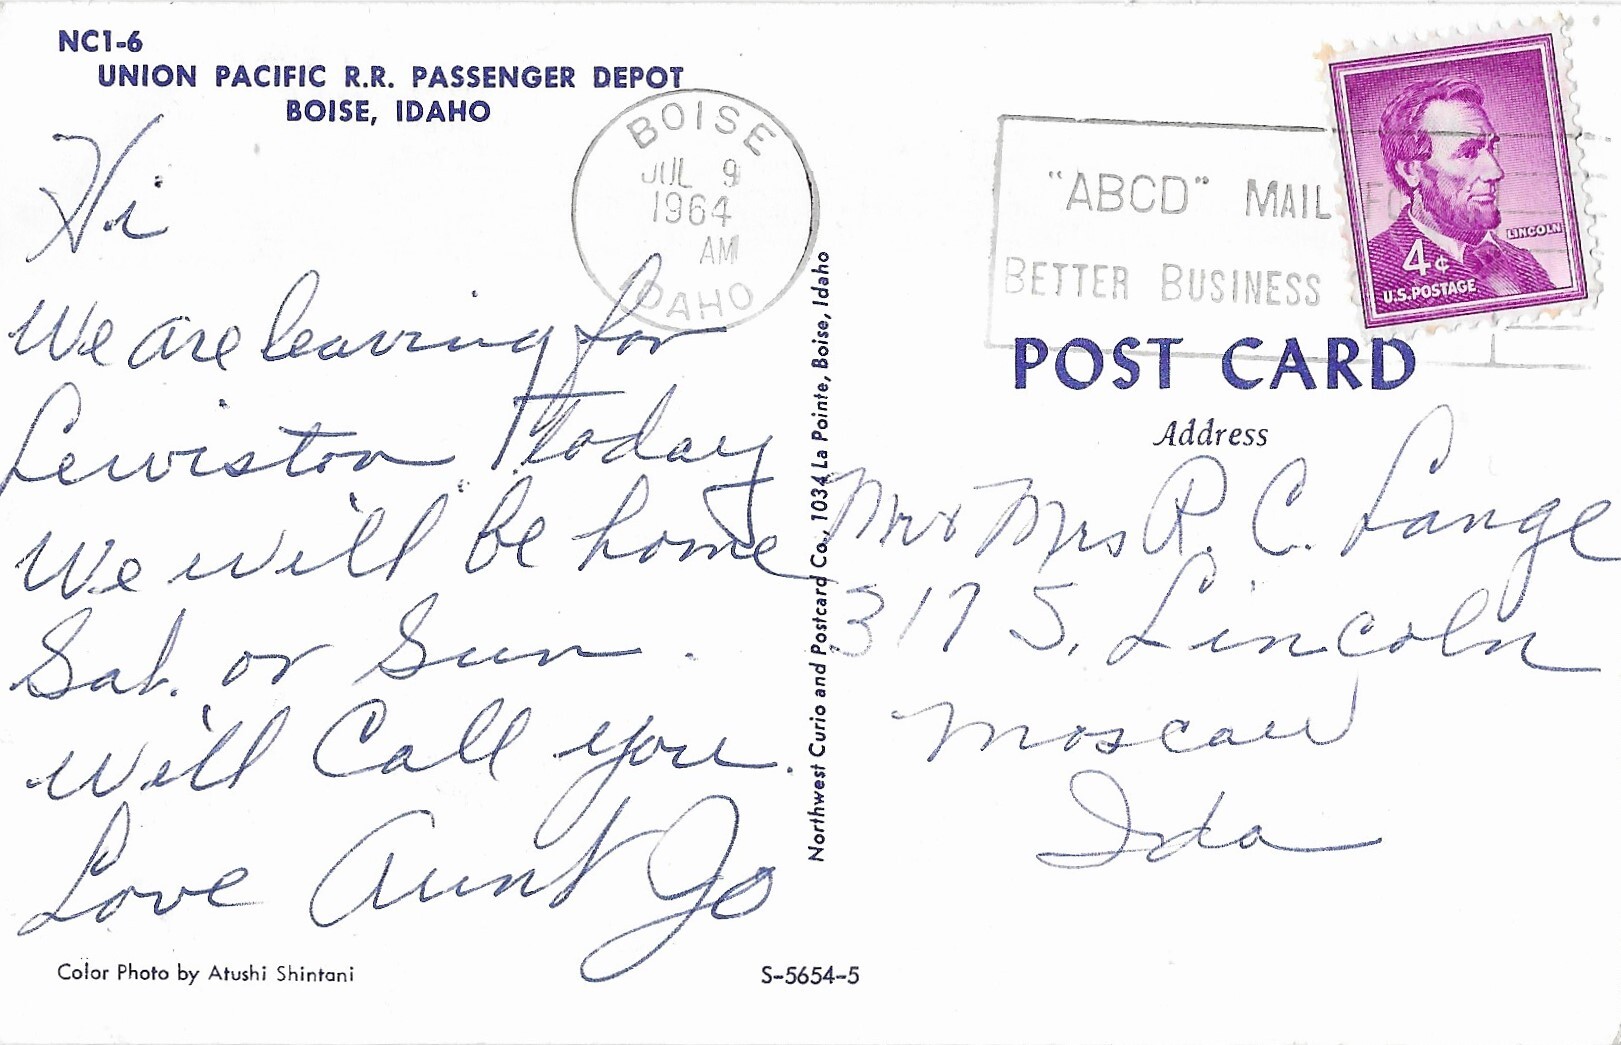 NC1-6
UNION PACIFIC R.R. PASSENGER DEPOT
BOISE, IDAHO
Hi
We are leaving for
Lewiston today
We will be home
Sat. or Sun.
Will Call you.
Love Aunt Jo
Color Photo by Atushi Shintani
S-5654-5
Northwest Curio and Postcard Co., 1034 La Pointe, Boise, Idaho
BOISE
JUL 9
1964
AM
IDAHO
"ABCD" MAIL
BETTER BUSINESS
LINCOLN
4¢
U.S. POSTAGE
POST CARD
Address
Mr & Mrs R. C. Lange
317 S. Lincoln
Moscow
Ida